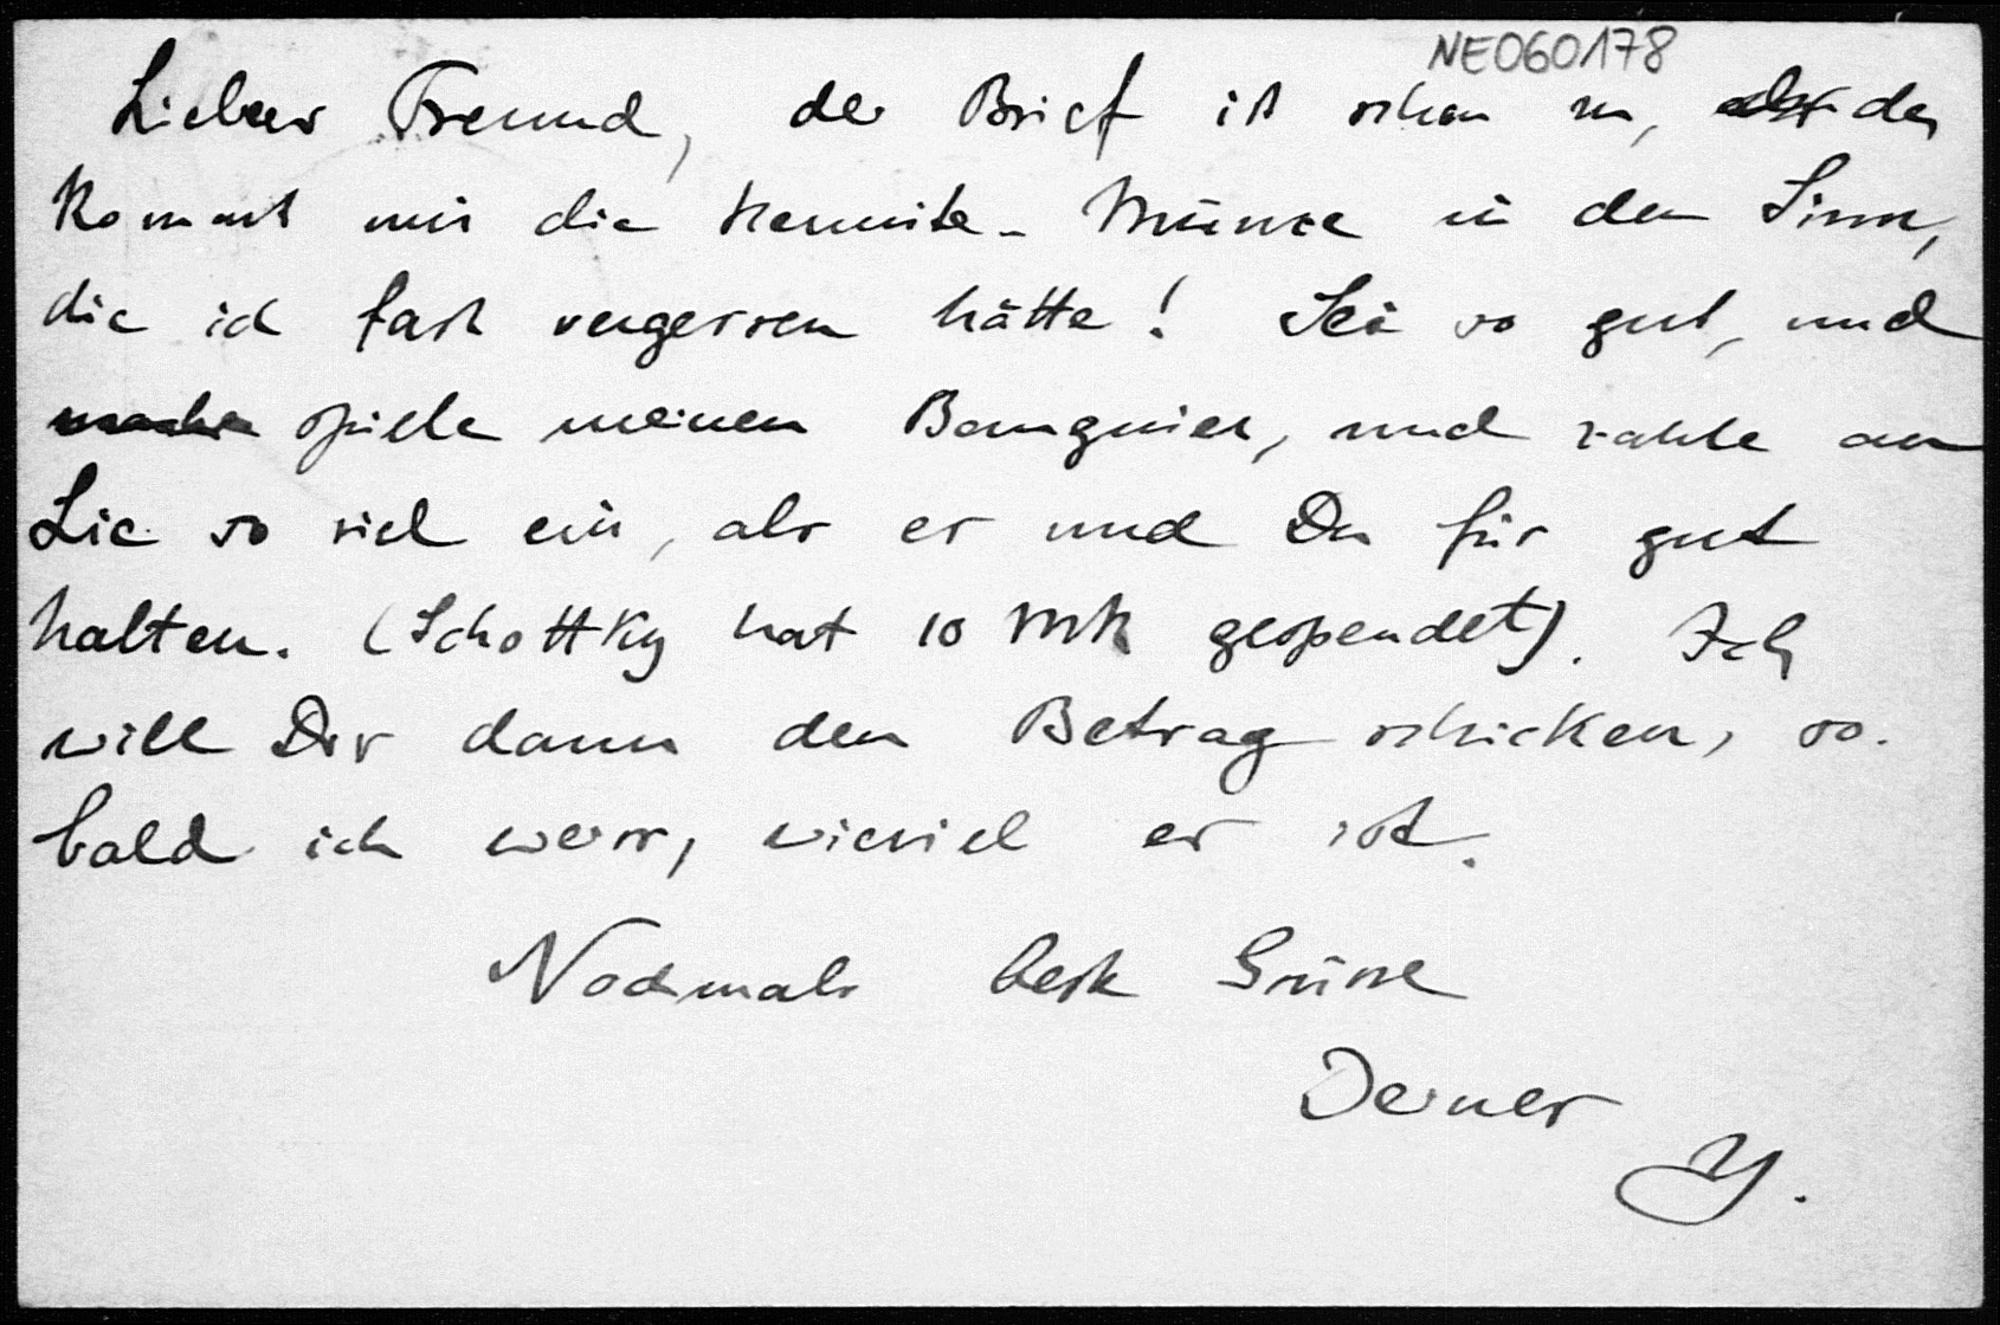 NE060178
Lieber Freund, der Brief ist schon zu, da
kommt mir die Hermite-Münze in den Sinn,
die ich fast vergessen hätte! Sei so gut, und
mache spiele meinen Banquier, und zahle an
Lie so viel ein, als er und Du für gut
halten. (Schottky hat 10 Mk gespendet). Ich
will Dir dann den Betrag schicken, so-
bald ich weiss, wieviel es ist.
Nochmals beste Grüsse
Deiner
H.